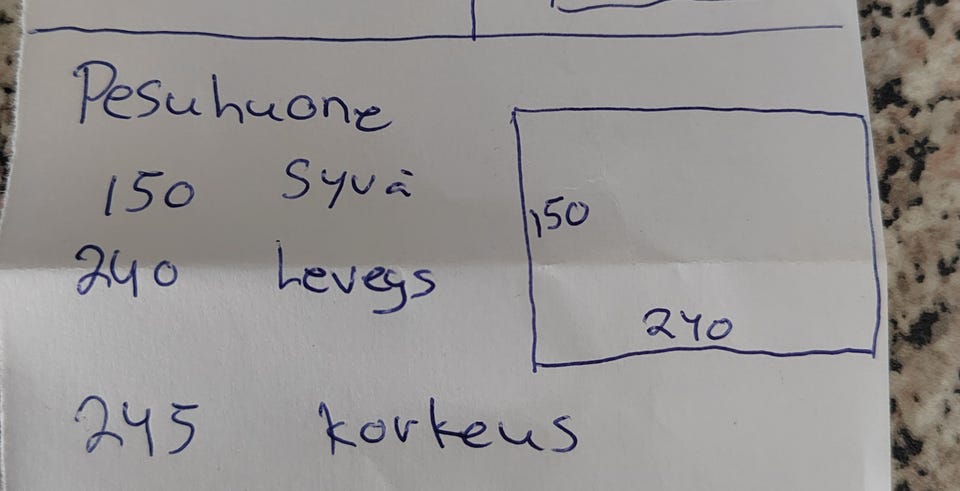 Pesuhuone
150 Syvä
240 Leveys
150
240
245 korkeus